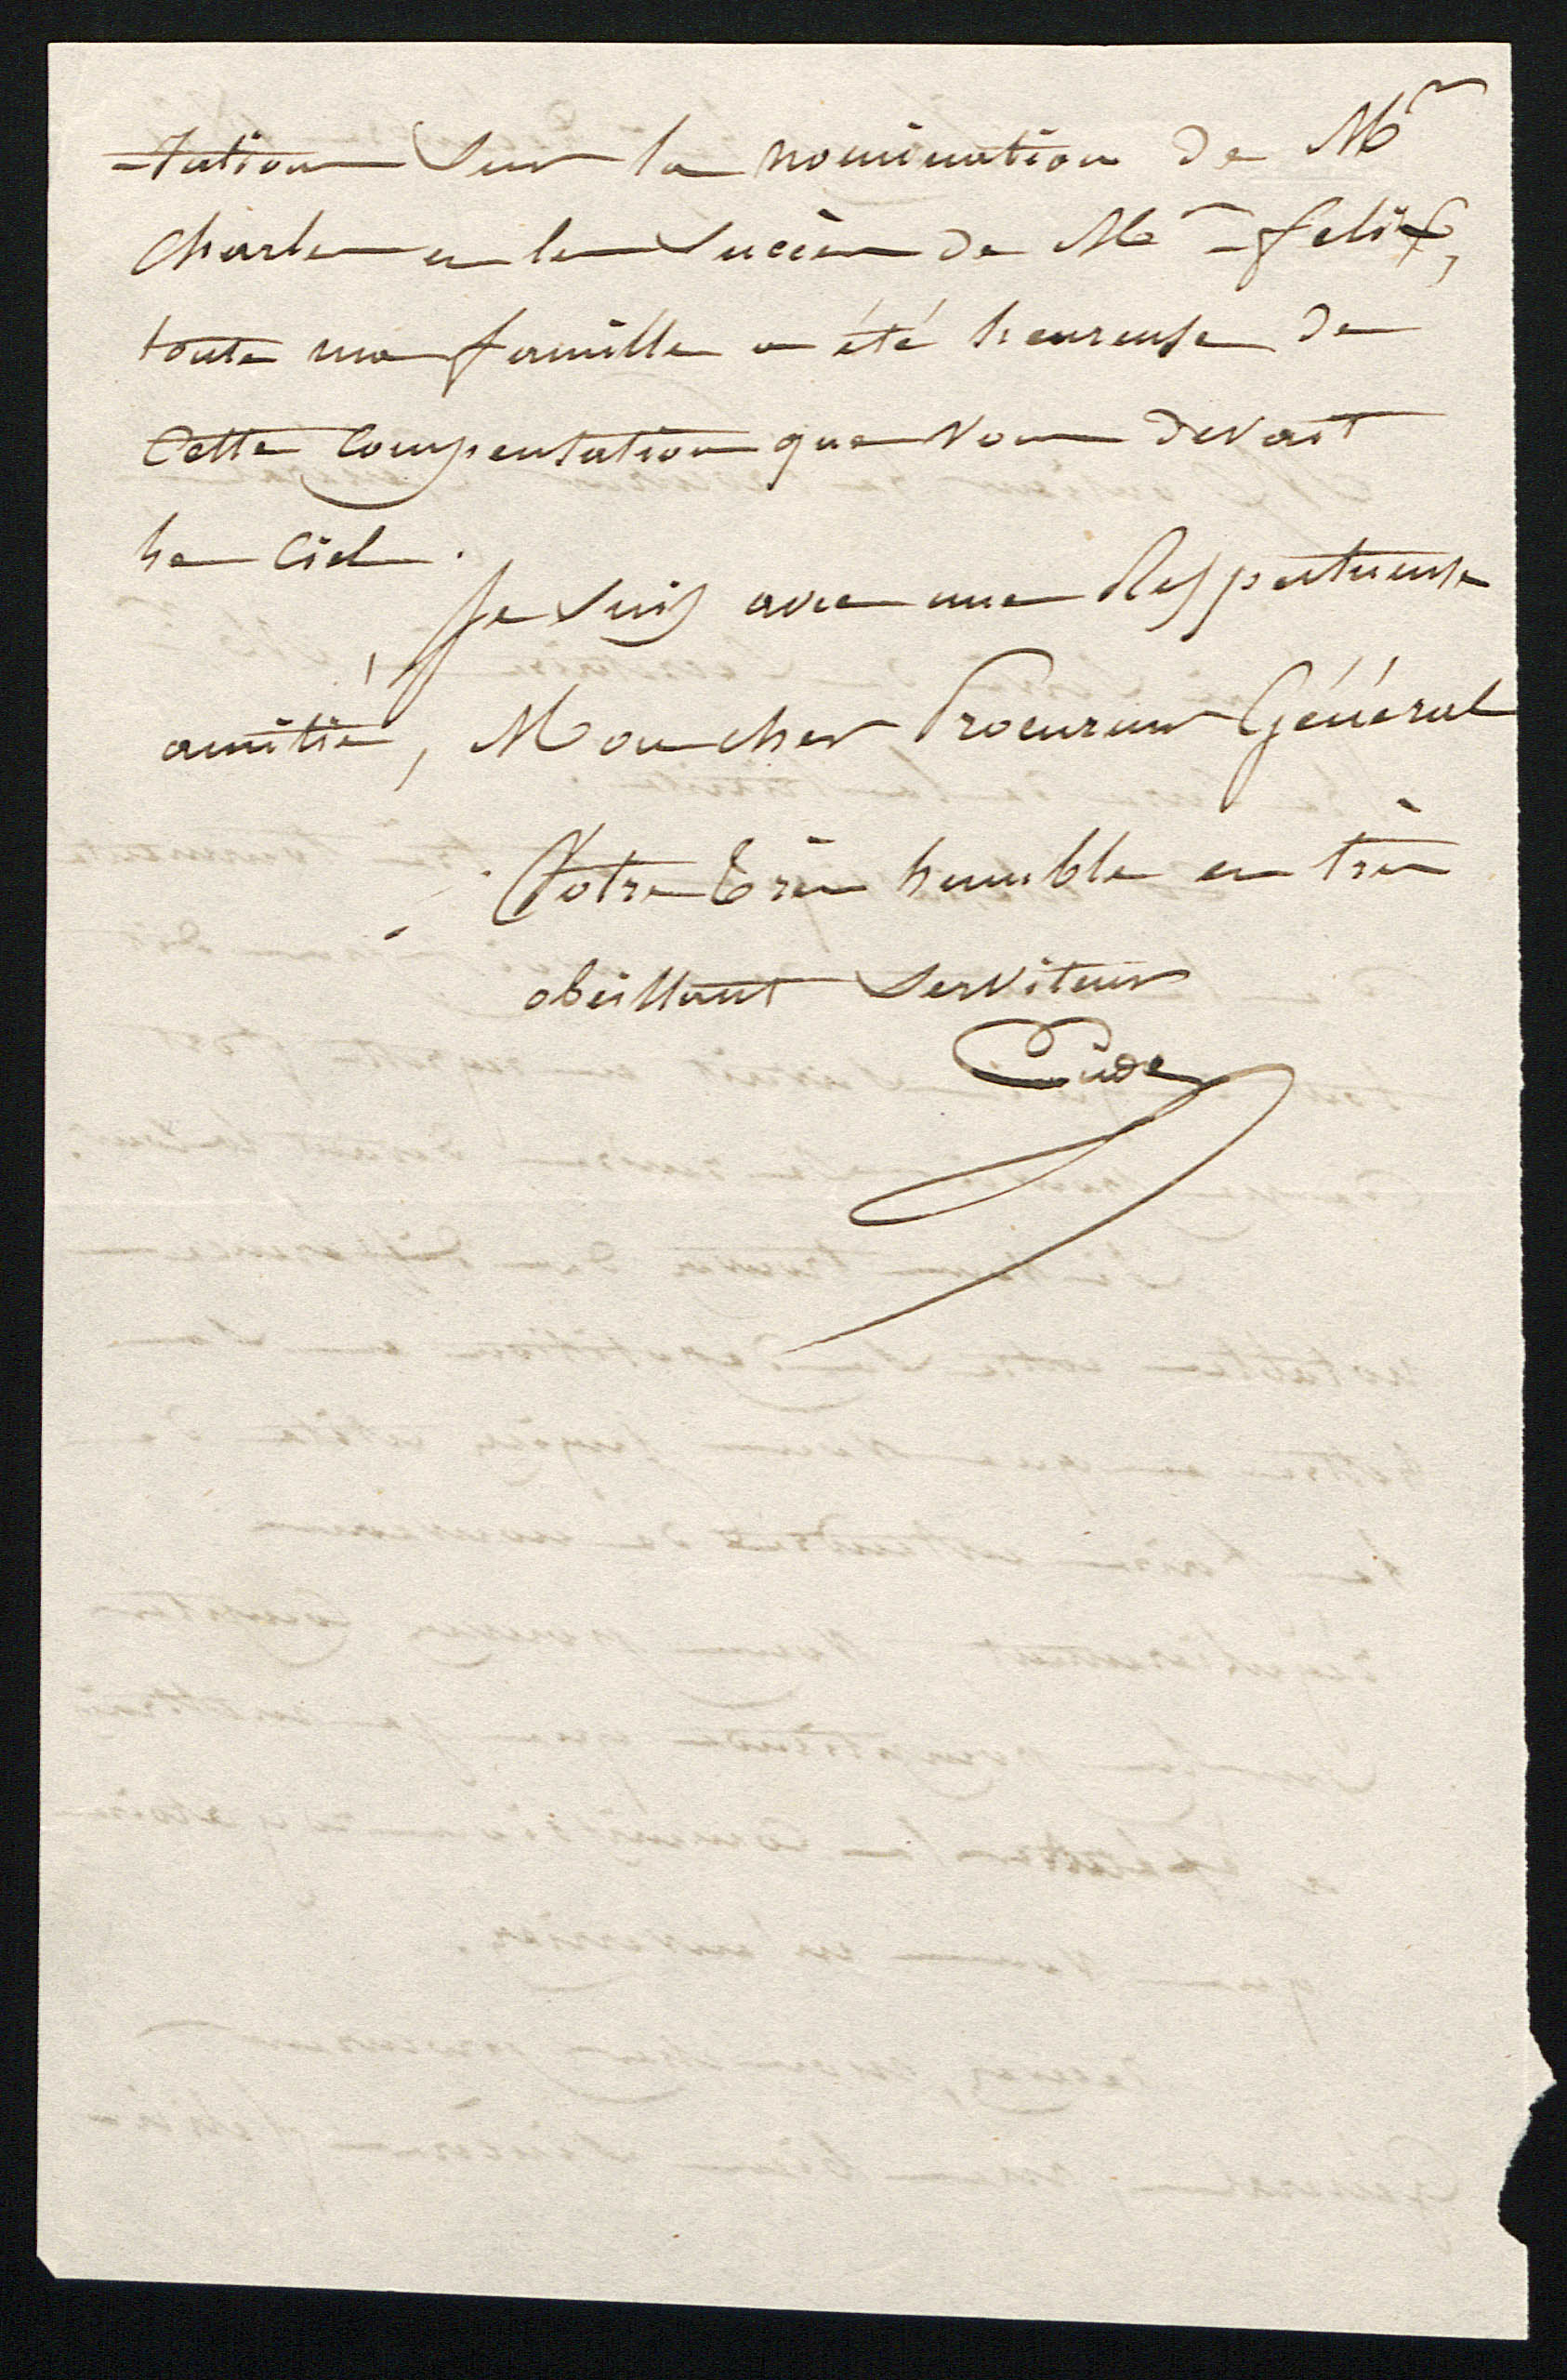 -tation sur la nomination de Mr
Charles et les succès de Mr felix,
toute ma famille a été heureuse de
Cette compensation que vous devait
le Ciel.
Je suis avec une Respectueuse
amitié, Mon cher Procureur Général
Votre très humble et très
obéissant serviteur
Eude